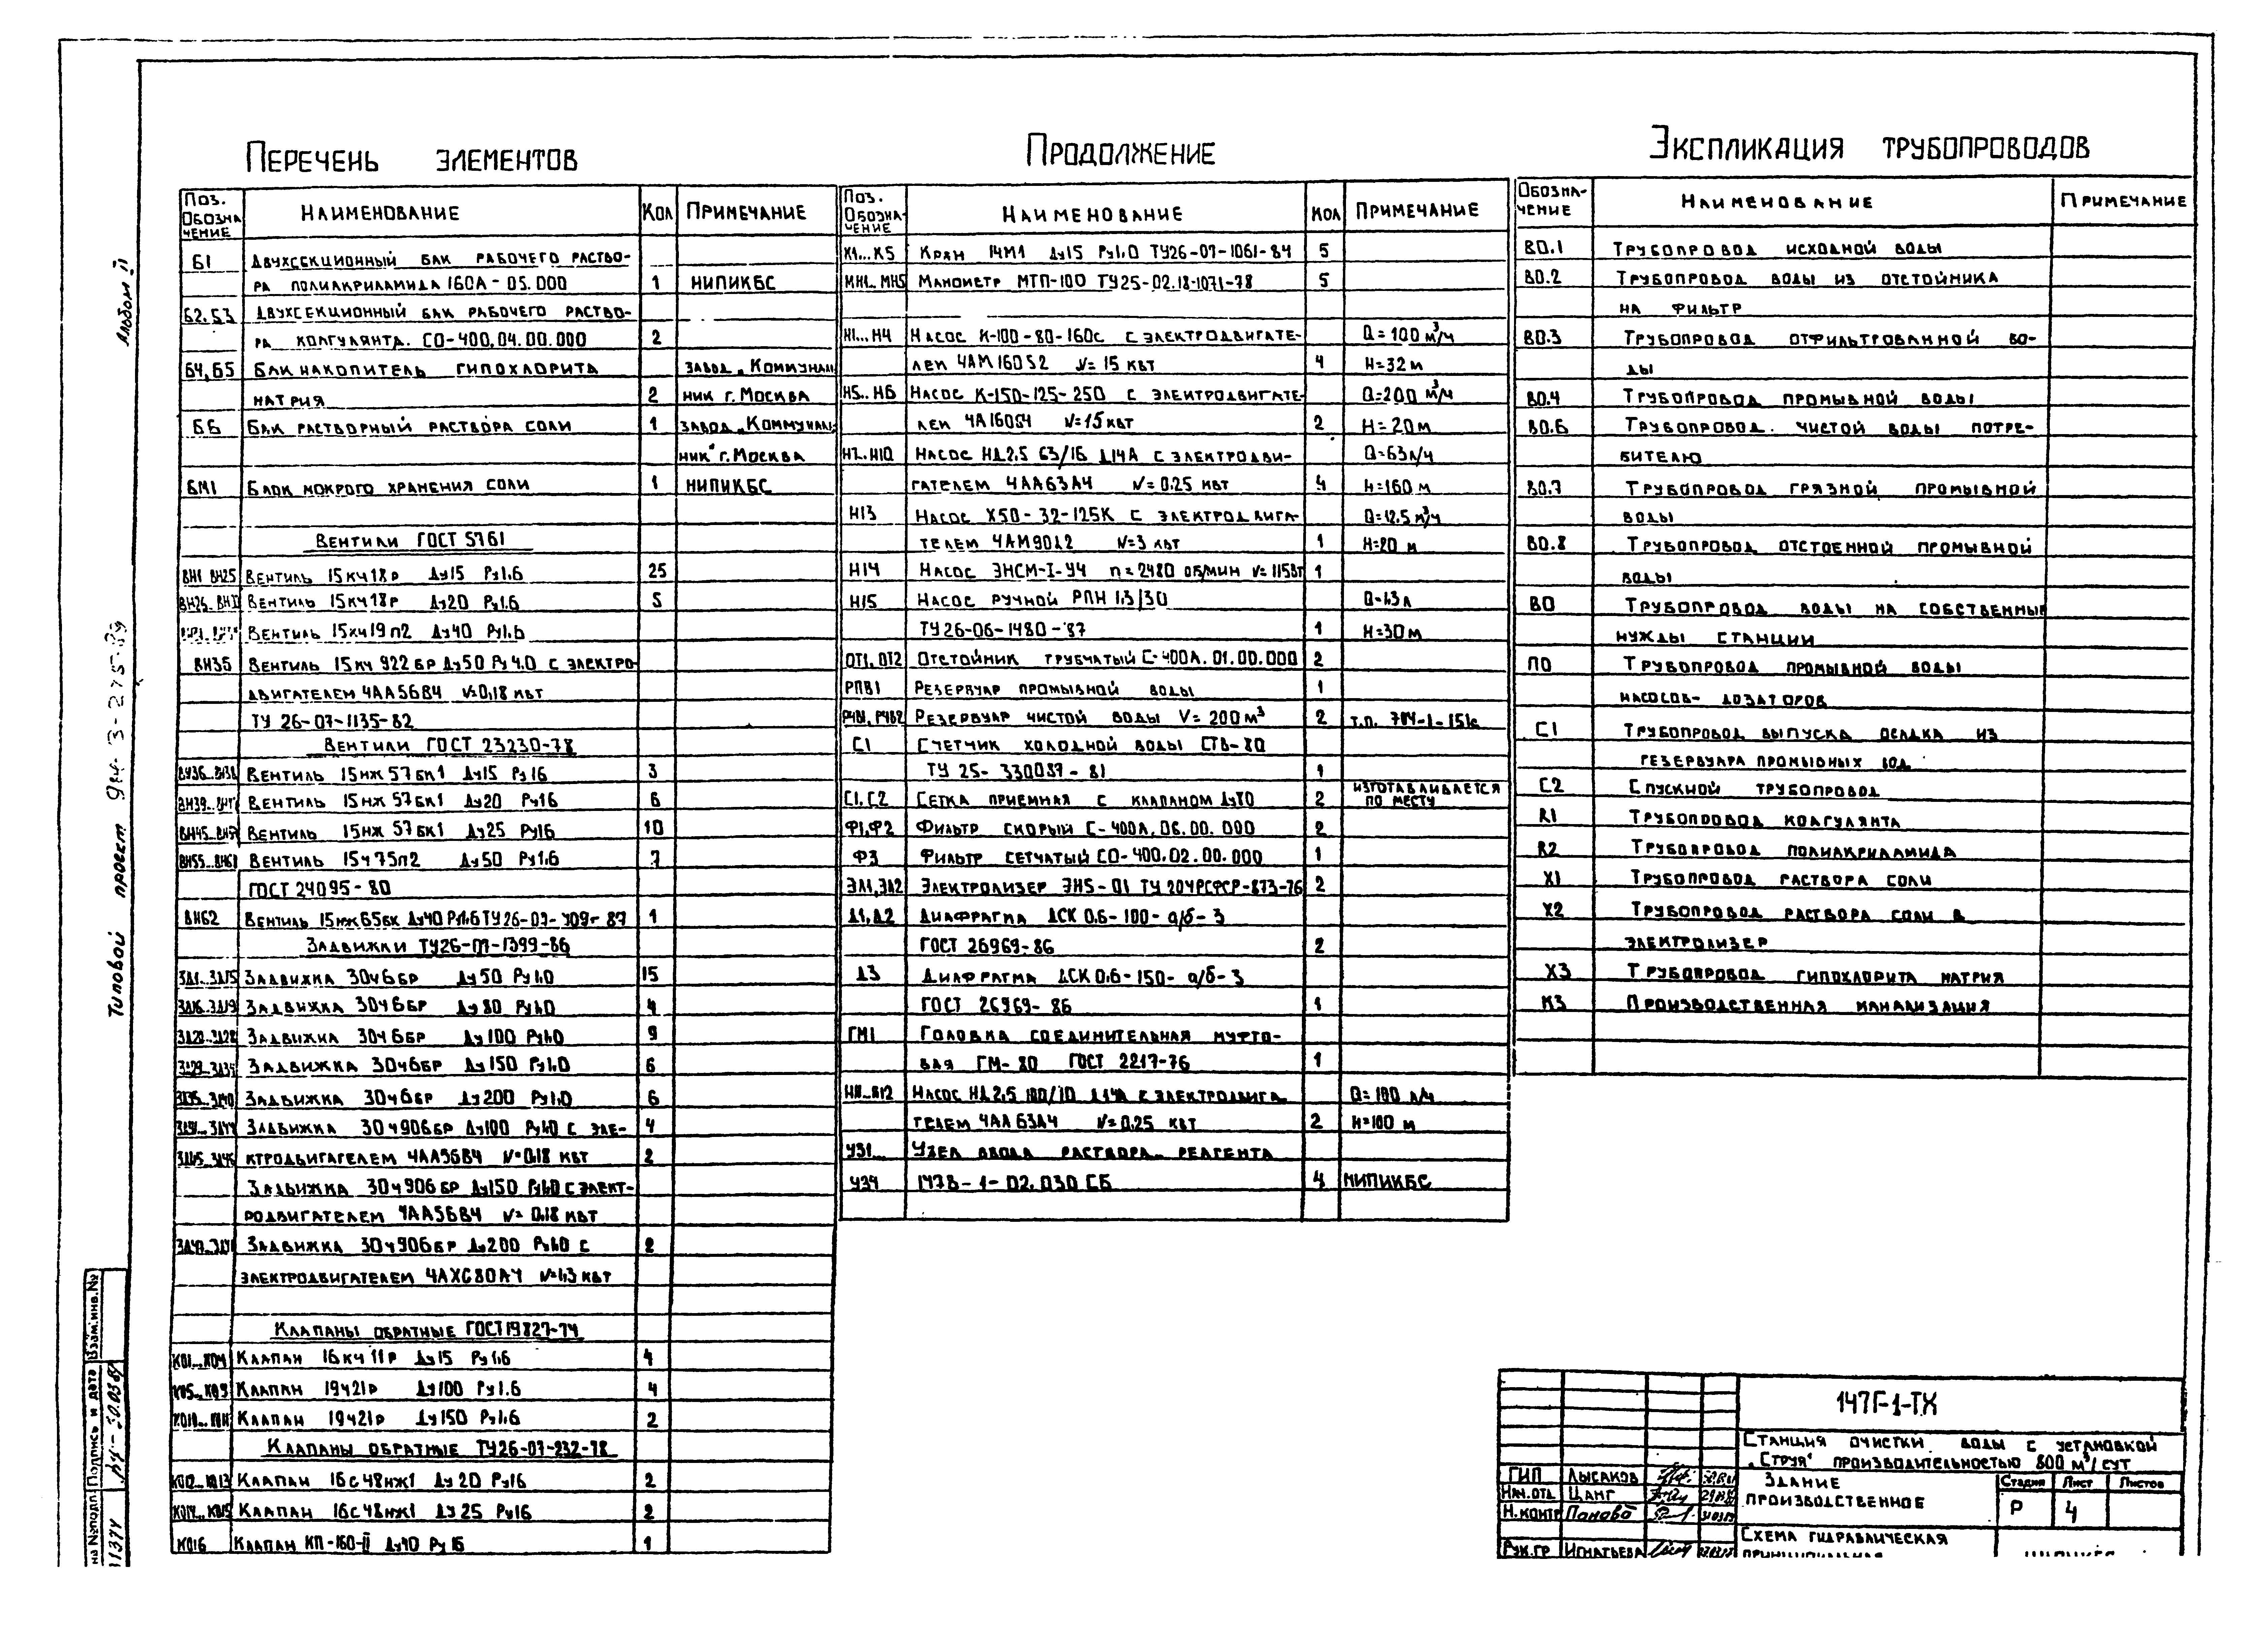 Перечень элементов
Поз. Обозначение Наименование Кол Примечание
Б1 Двухсекционный бак рабочего раство-
ра полиакриламида 160А-05.000 1 НИПИКБС
Б2, Б3 Двухсекционный бак рабочего раство-
ра коагулянта. СО-400.04.00.000 2
Б4, Б5 Бак накопитель гипохлорита завод „Коммуналь
натрия 2 ник г. Москва
Б6 Бак растворный раствора соли 1 завод „Коммуналь
ник" г. Москва
БМ1 Блок мокрого хранения соли 1 НИПИКБС
Вентили ГОСТ 5761
ВН1 ВН25 Вентиль 15кч18р Ду15 Ру1.6 25
Вентиль 15кч18р Ду20 Ру1.6 5
Вентиль 15кч19п2 Ду40 Ру1.6
ВН35 Вентиль 15кч 922 бр Ду50 Ру 4.0 с электро-
двигателем 4АА56В4 N=0,18 кВт
ТУ 26-07-1135-82
Вентили ГОСТ 23230-78
ВН36...ВН38 Вентиль 15нж 57бк1 Ду15 Ру16 3
Вентиль 15нж 57бк1 Ду20 Ру16 6
ВН45...ВН54 Вентиль 15нж 57бк1 Ду25 Ру16 10
ВН55...ВН61 Вентиль 15ч75п2 Ду50 Ру1.6 7
ГОСТ 24095-80
ВН62 Вентиль 15нж65бк Ду40 Ру1.6 ТУ26-07- 87 1
Задвижки ТУ26-07-1399-86
ЗД1...ЗД15 Задвижка 30ч6бр Ду50 Ру1.0 15
ЗД16...ЗД19 Задвижка 30ч6бр Ду80 Ру1.0 4
ЗД20...ЗД28 Задвижка 30ч6бр Ду100 Ру1.0 9
ЗД29...ЗД34 Задвижка 30ч6бр Ду150 Ру1.0 6
ЗД35...ЗД40 Задвижка 30ч6бр Ду200 Ру1.0 6
ЗД41...ЗД44 Задвижка 30ч906бр Ду100 Ру1.0 с эле- 4
ЗД45...ЗД46 ктродвигателем 4АА56В4 N=0.18 кВт 2
Задвижка 30ч906бр Ду150 Ру1.0 с элект-
родвигателем 4АА56В4 N=0.18 кВт
Задвижка 30ч906бр Ду200 Ру1.0 с 2
электродвигателем 4АХС80А4 N=1,3 кВт
Клапаны обратные ГОСТ19827-74
КО1...КО4 Клапан 16кч11р Ду15 Ру1.6 4
Клапан 19ч21р Ду100 Ру1.6 4
КО10...КО11 Клапан 19ч21р Ду150 Ру1.6 2
Клапаны обратные ТУ26-07-232-78
КО12...КО13 Клапан 16с48нж1 Ду20 Ру16 2
КО14...КО15 Клапан 16с48нж1 Ду25 Ру16 2
КО16 Клапан КП-160-II Ру16 1
Продолжение
Поз. Обозначение Наименование Кол Примечание
К1...К5 Кран 14М1 Ду15 Ру1.0 ТУ26-07-1061-84 5
МН1...МН5 Манометр МТП-100 ТУ25-02.18-1071-78 5
Н1...Н4 Насос К-100-80-160с с электродвигате- Q=100 м³/ч
лем 4АМ160S2 N=15 кВт 4 Н=32м
Н5...Н6 Насос К-150-125-250 с электродвигате- Q=200 м³/ч
лем 4А160S4 N=15 кВт 2 Н=20м
Н7...Н10 Насос НД2.5 63/16 Д14А с электродви- Q=63л/ч
гателем 4АА63А4 N=0.25 кВт 4 Н=160 м
Н13 Насос Х50-32-125К с электродвига- Q=12.5 м³/ч
телем 4АМ90L2 N=3 кВт 1 Н=20 м
Н14 Насос ЭНСМ-I-У4 n=2480 об/мин N=115Вт 1
Н15 Насос ручной РПН 1.3/30 Q=1.3л
ТУ26-06-1480-87 1 Н=30м
ОТ1, ОТ2 Отстойник трубчатый С-400А.01.00.000 2
РПВ1 Резервуар промывной воды 1
РЧВ1, РЧВ2 Резервуар чистой воды V=200м³ 2
С1 Счетчик холодной воды СТВ-80
ТУ 25-330037-81 1
С1, С2 Сетка приемная с клапаном Ду80 2 изготавливается по месту
Ф1, Ф2 Фильтр скорый С-400А.06.00.000 2
Ф3 Фильтр сетчатый СО-400.02.00.000 1
ЭЛ1, ЭЛ2 Электролизер ЭН5-01 ТУ 204РСФСР-873-76 2
Д1, Д2 Диафрагма ДСК 0.6-100-а/б-3
ГОСТ 26969-86 2
Д3 Диафрагма ДСК 0.6-150-а/б-3
ГОСТ 26969-86 1
ГМ1 Головка соединительная муфто-
вая ГМ-80 ГОСТ 2217-76 1
Н11...Н12 Насос НД2.5 100/10 Д14А с электродвига Q=100 л/ч
телем 4АА63А4 N=0.25 кВт 2 Н=100 м
УЗ1... Узел ввода раствора реагента
УЗ4 147В-1-02.030 СБ 4 НИПИКБС
Экспликация трубопроводов
Обозначение Наименование Примечание
В0.1 Трубопровод исходной воды
В0.2 Трубопровод воды из отстойника
на фильтр
В0.3 Трубопровод отфильтрованной во-
ды
В0.4 Трубопровод промывной воды
В0.6 Трубопровод чистой воды потре-
бителю
В0.7 Трубопровод грязной промывной
воды
В0.8 Трубопровод отстоенной промывной
воды
В0 Трубопровод воды на собственные
нужды станции
П0 Трубопровод промывной воды
насосов-дозаторов
С1 Трубопровод выпуска осадка из
резервуара промывных вод
С2 Спускной трубопровод
R1 Трубопровод коагулянта
R2 Трубопровод полиакриламида
Х1 Трубопровод раствора соли
Х2 Трубопровод раствора соли в
электролизер
Х3 Трубопровод гипохлорита натрия
К3 Производственная канализация
147Г-1-ТХ
Станция очистки воды с установкой
„Струя" производительностью 800 м³/сут
Здание производственное
Стадия Лист Листов
Р 4
Схема гидравлическая
принципиальная
ГИП Лысаков
Нач.отд Цанг
Н.контр Панова
Рук.гр Игнатьева
Альбом II
Типовой проект
Взам.инв.№
Подпись и дата
11374